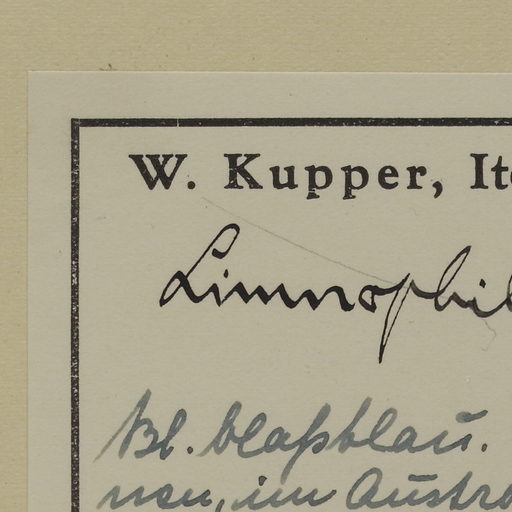 W. Kupper, It
Limnophil
Bl. blaßblau.
nen, im Austra